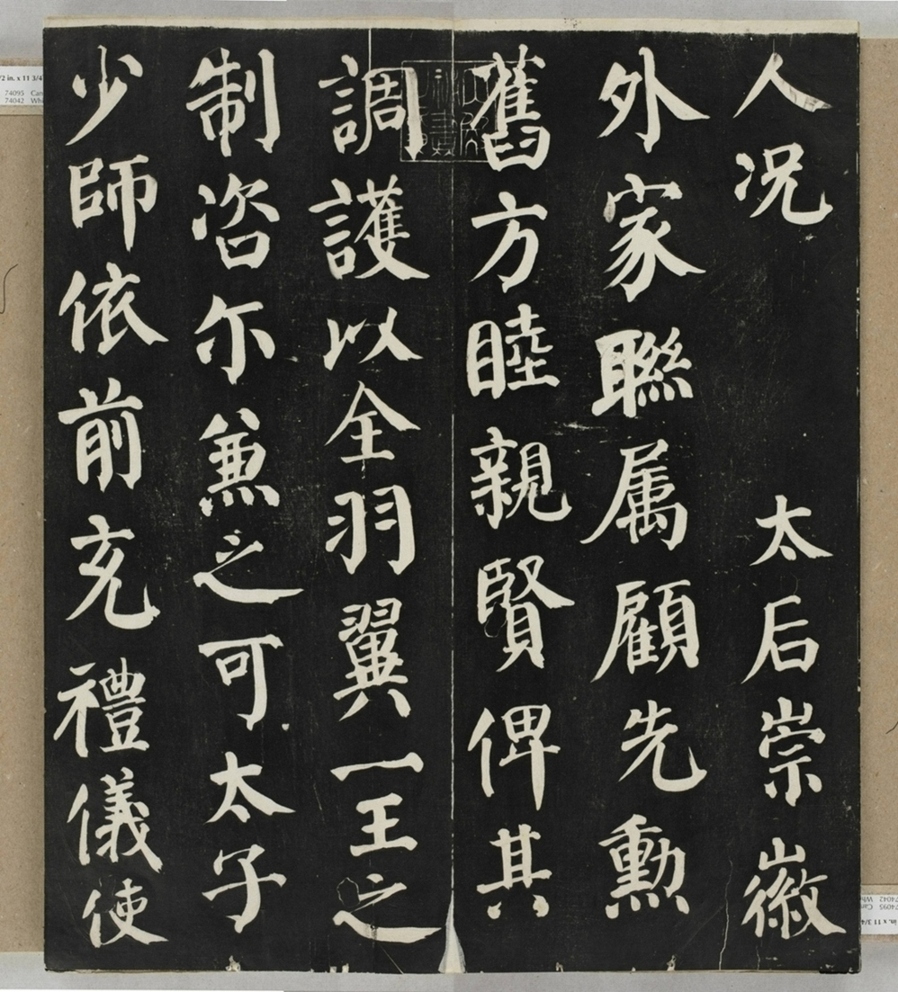 人况 太后崇徽
外家聯属顧先勳
舊方睦親賢俾其
調護以全羽翼一王之
制咨尔兼之可太子
少師依前充禮儀使